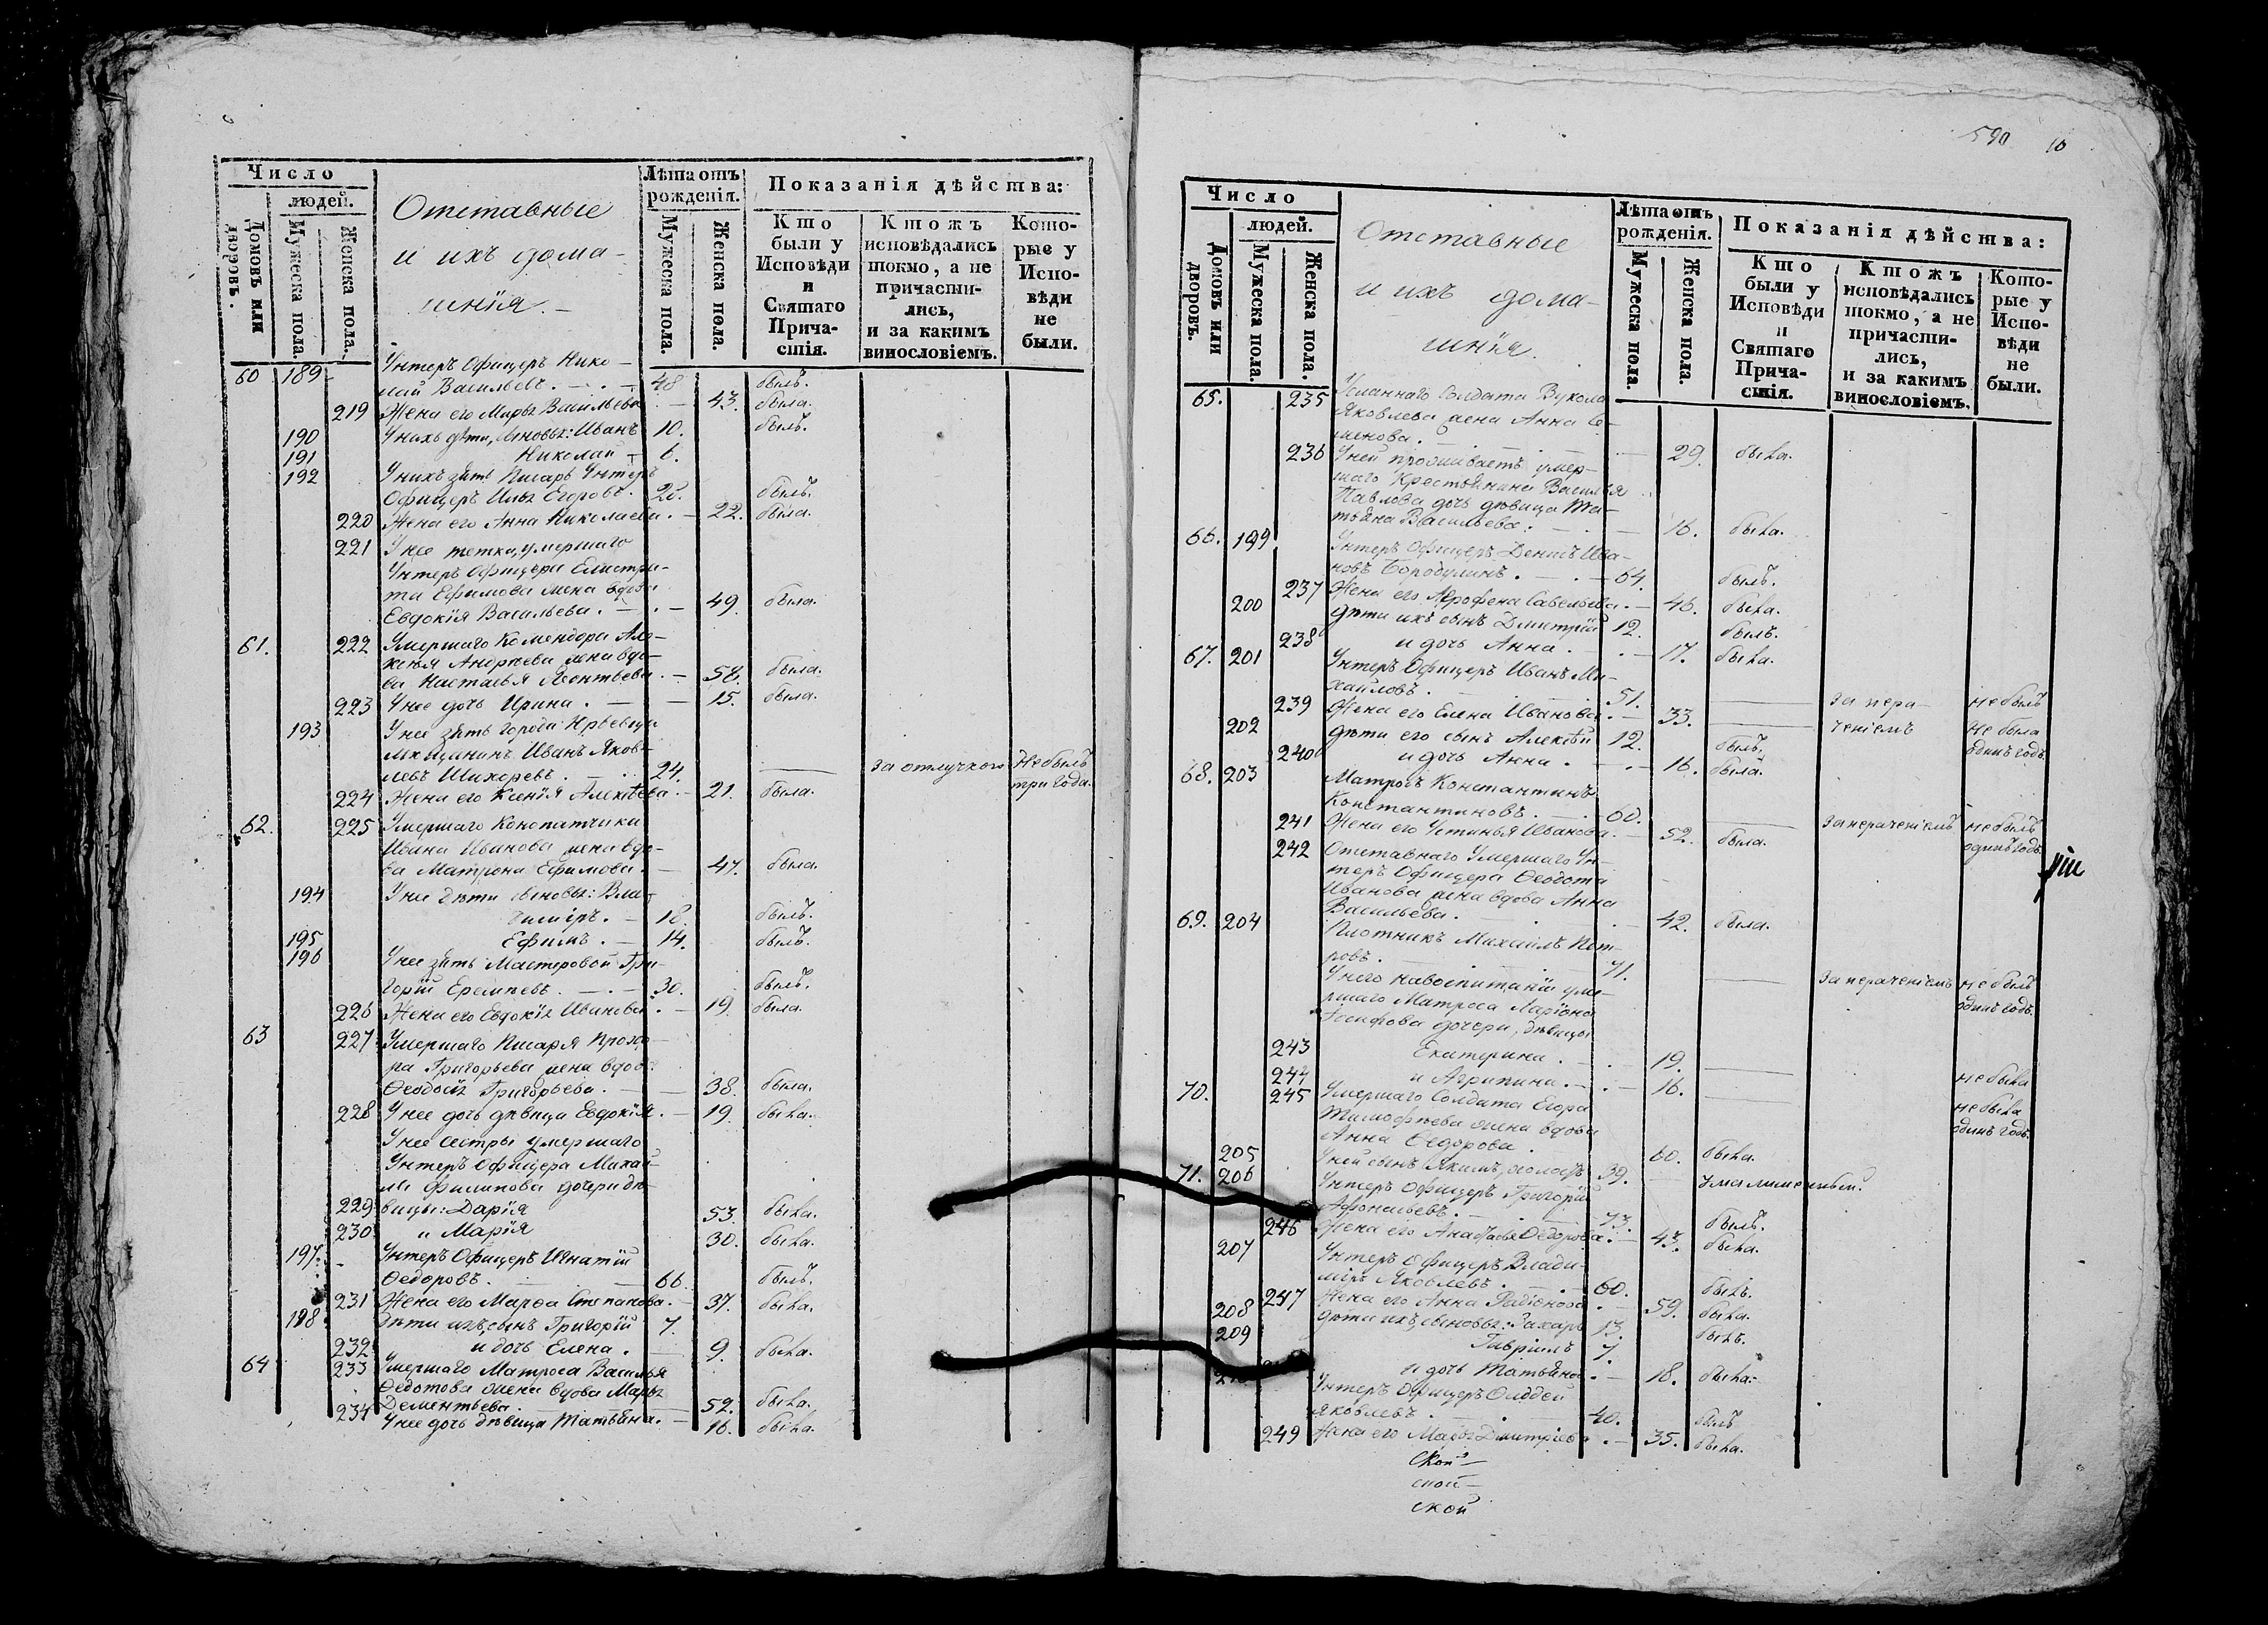 590 10
Число
людей.
Домовъ или дворовъ.
Мужеска пола.
Женска пола.
Отставные
и ихъ дома-
шнія. -
Лѣта отъ рожденія.
Мужеска пола.
Женска пола.
Показанія дѣйства:
Кто были у Исповѣди и Святаго Прича-стія.
Ктожъ исповѣдались токмо, а не причасти-лись, и за какимъ винословіемъ.
Кото-рые у Испо-вѣди не были.
60 189 Унтеръ Офицеръ Нико-
лай Васильевъ. 48 былъ.
219 Жена его Марѳа Васильева 43. была.
190 У нихъ дѣти, сыновья: Иванъ 10. былъ.
191 Николай 6.
192 У нихъ зять Писарь Унтеръ
Офицеръ Илья Егоровъ. 28. былъ.
220 Жена его Анна Николаева. 22. была.
221 У нее тетка, умершаго
Унтеръ Офицера Елистра-
та Ефимова жена вдова
Евдокія Васильева. 49. была.
61. 222 Умершаго Комендора Але-
ксѣя Андрѣева жена вдо-
ва Настасья Леонтьева. 58. была.
223 У нее дочь Ирина. 15. была.
193 У нее зять города Юрьевца
мѣщанинъ Иванъ Яков-
левъ Шихоревъ. 24. за отлучкою Не былъ
224 Жена его Ксенія Алексѣева. 21. была. три года.
62. 225 Умершаго Конопатчика
Ивана Иванова жена вдо-
ва Матрона Ефимова. 47. была.
194 У нее дѣти сыновья: Вла-
димиръ. 18. былъ.
195 Ефимъ. 14. былъ.
196 У нее зять Мастеровой Гри-
горій Еремѣевъ. 30. былъ.
226 Жена его Евдокія Иванова. 19. была.
63 227 Умершаго Писаря Прохо-
ра Григорьева жена вдова
Ѳеодосія Григорьева. 38. была.
228 У нее дочь дѣвица Евдокія. 19. была.
У нее сестры умершаго
Унтеръ Офицера Михай-
ла Филипова дочери дѣ-
229 вицы: Дарія 53. была.
230 и Марія 30. была.
197. Унтеръ Офицеръ Игнатій
Ѳедоровъ. 66. былъ.
231 Жена его Марѳа Степанова. 37. была.
198. Дѣти ихъ, сынъ Григорій 7.
232 и дочь Елена. 9. была.
64 233 Умершаго Матроса Василья
Ѳедотова жена вдова Марья
Дементьева. 52. была.
234 У нее дочь дѣвица Татьяна. 16. была.
Число
людей.
Домовъ или дворовъ.
Мужеска пола.
Женска пола.
Отставные
и ихъ дома-
шнія.
Лѣта отъ рожденія.
Мужеска пола.
Женска пола.
Показанія дѣйства:
Кто были у Исповѣди и Святаго Прича-стія.
Ктожъ исповѣдались токмо, а не причасти-лись, и за какимъ винословіемъ.
Кото-рые у Испо-вѣди не были.
65. 235 Солдата Вукола
Яковлева жена Анна Се-
менова. 29. была.
236 У ней проживаетъ умер-
шаго Крестьянина Василья
Павлова дочь дѣвица Та-
тьяна Васильева. 16. была.
66. 199 Унтеръ Офицеръ Денисъ Ива-
новъ Бородулинъ. 64. былъ.
237 Жена его Агрофена Савельева. 46. была.
200 Дѣти ихъ сынъ Дмитрій 12. былъ.
238 и дочь Анна. 17. была.
67. 201 Унтеръ Офицеръ Иванъ Ми-
хайловъ. 51. за нера- не былъ
239 Жена его Елена Иванова. 33. ченіемъ не была
202 Дѣти его сынъ Алексѣй 12. былъ. одинъ годъ.
240 и дочь Анна. 16. была.
68. 203 Матросъ Константинъ
Константиновъ. 60. за нераченіемъ не былъ
241 Жена его Устинья Иванова. 52. была. одинъ годъ.
242 Отставнаго Умершаго Ун-
теръ Офицера Ѳеодота
Иванова жена вдова Анна
Васильева. 42. была.
69. 204 Плотникъ Михаилъ Пет-
ровъ. 71. за нераченіемъ не былъ
У него на воспитаніи уме- одинъ годъ.
ршаго Матроса Ларіона
Іосифова дочери, дѣвицы
243 Екатерина. 19. не была
244 и Агрипина. 16. не была
70. 245 Умершаго Солдата Егора одинъ годъ.
Тимофѣева жена вдова
Анна Ѳедорова. 60. была.
205 У ней сынъ Якимъ, 39. Ума лишенный.
71. 206 Унтеръ Офицеръ Григорій
Афонасьевъ. 73. былъ.
246 Жена его Анастасья Ѳедорова. 43. была.
207 Унтеръ Офицеръ Влади-
міръ Яковлевъ. 60. былъ.
247 Жена его Анна Радіонова. 59. была.
208 Дѣти ихъ, сыновья: Захаръ 13. былъ.
209 Гавріилъ 7.
и дочь Татьяна. 18. была.
Унтеръ Офицеръ Ѳаддей
Яковлевъ. 40. былъ
249 Жена его Марья Дмитріева. 35. была.
ской
ской